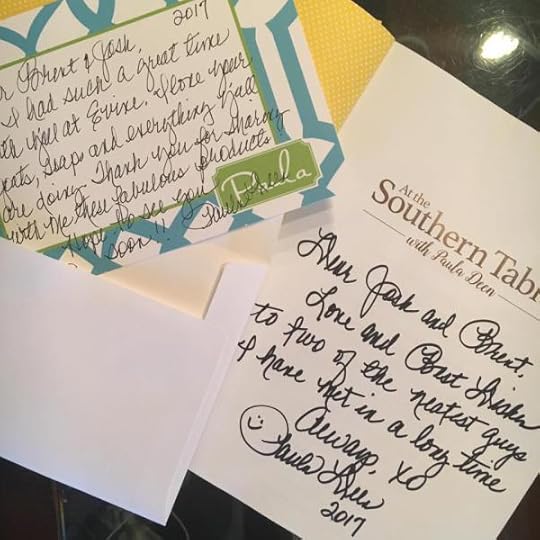 2017
r Brent & Josh,
I had such a great time
th you at Evine. I love your
oats, soaps and everything y'all
are doing. Thank you for sharing
with me these fabulous products!
Hope to see you
soon!!
Paula Deen
Paula
At the
Southern Tabl
with Paula Deen
Dear Josh and Brent,
Love and Best Wishes
to two of the neatest guys
I have met in a long time
Always, XO
Paula Deen
2017